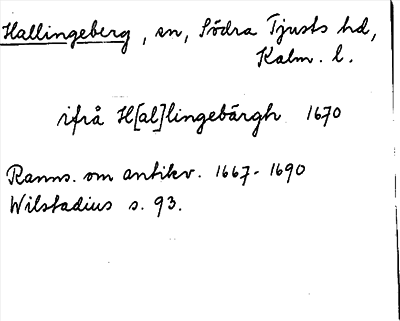 Hallingeberg, sn, Södra Tjusts hd,
Kalm. l.
ifrå H[al]lingebärgh 1670
Ranns. om antikv. 1667-1690
Wilstadius s. 93.